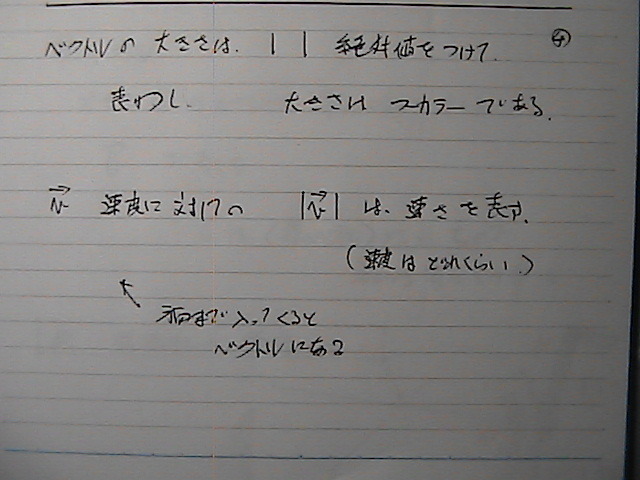 ベクトルの 大きさは. | | 絶対値をつけて ④
表わし. 大きさは スカラー である.
v→ 速度に対しての |v→| は、速さを表す.
(速度はどれくらい.)
まで入ってくると
ベクトルになる